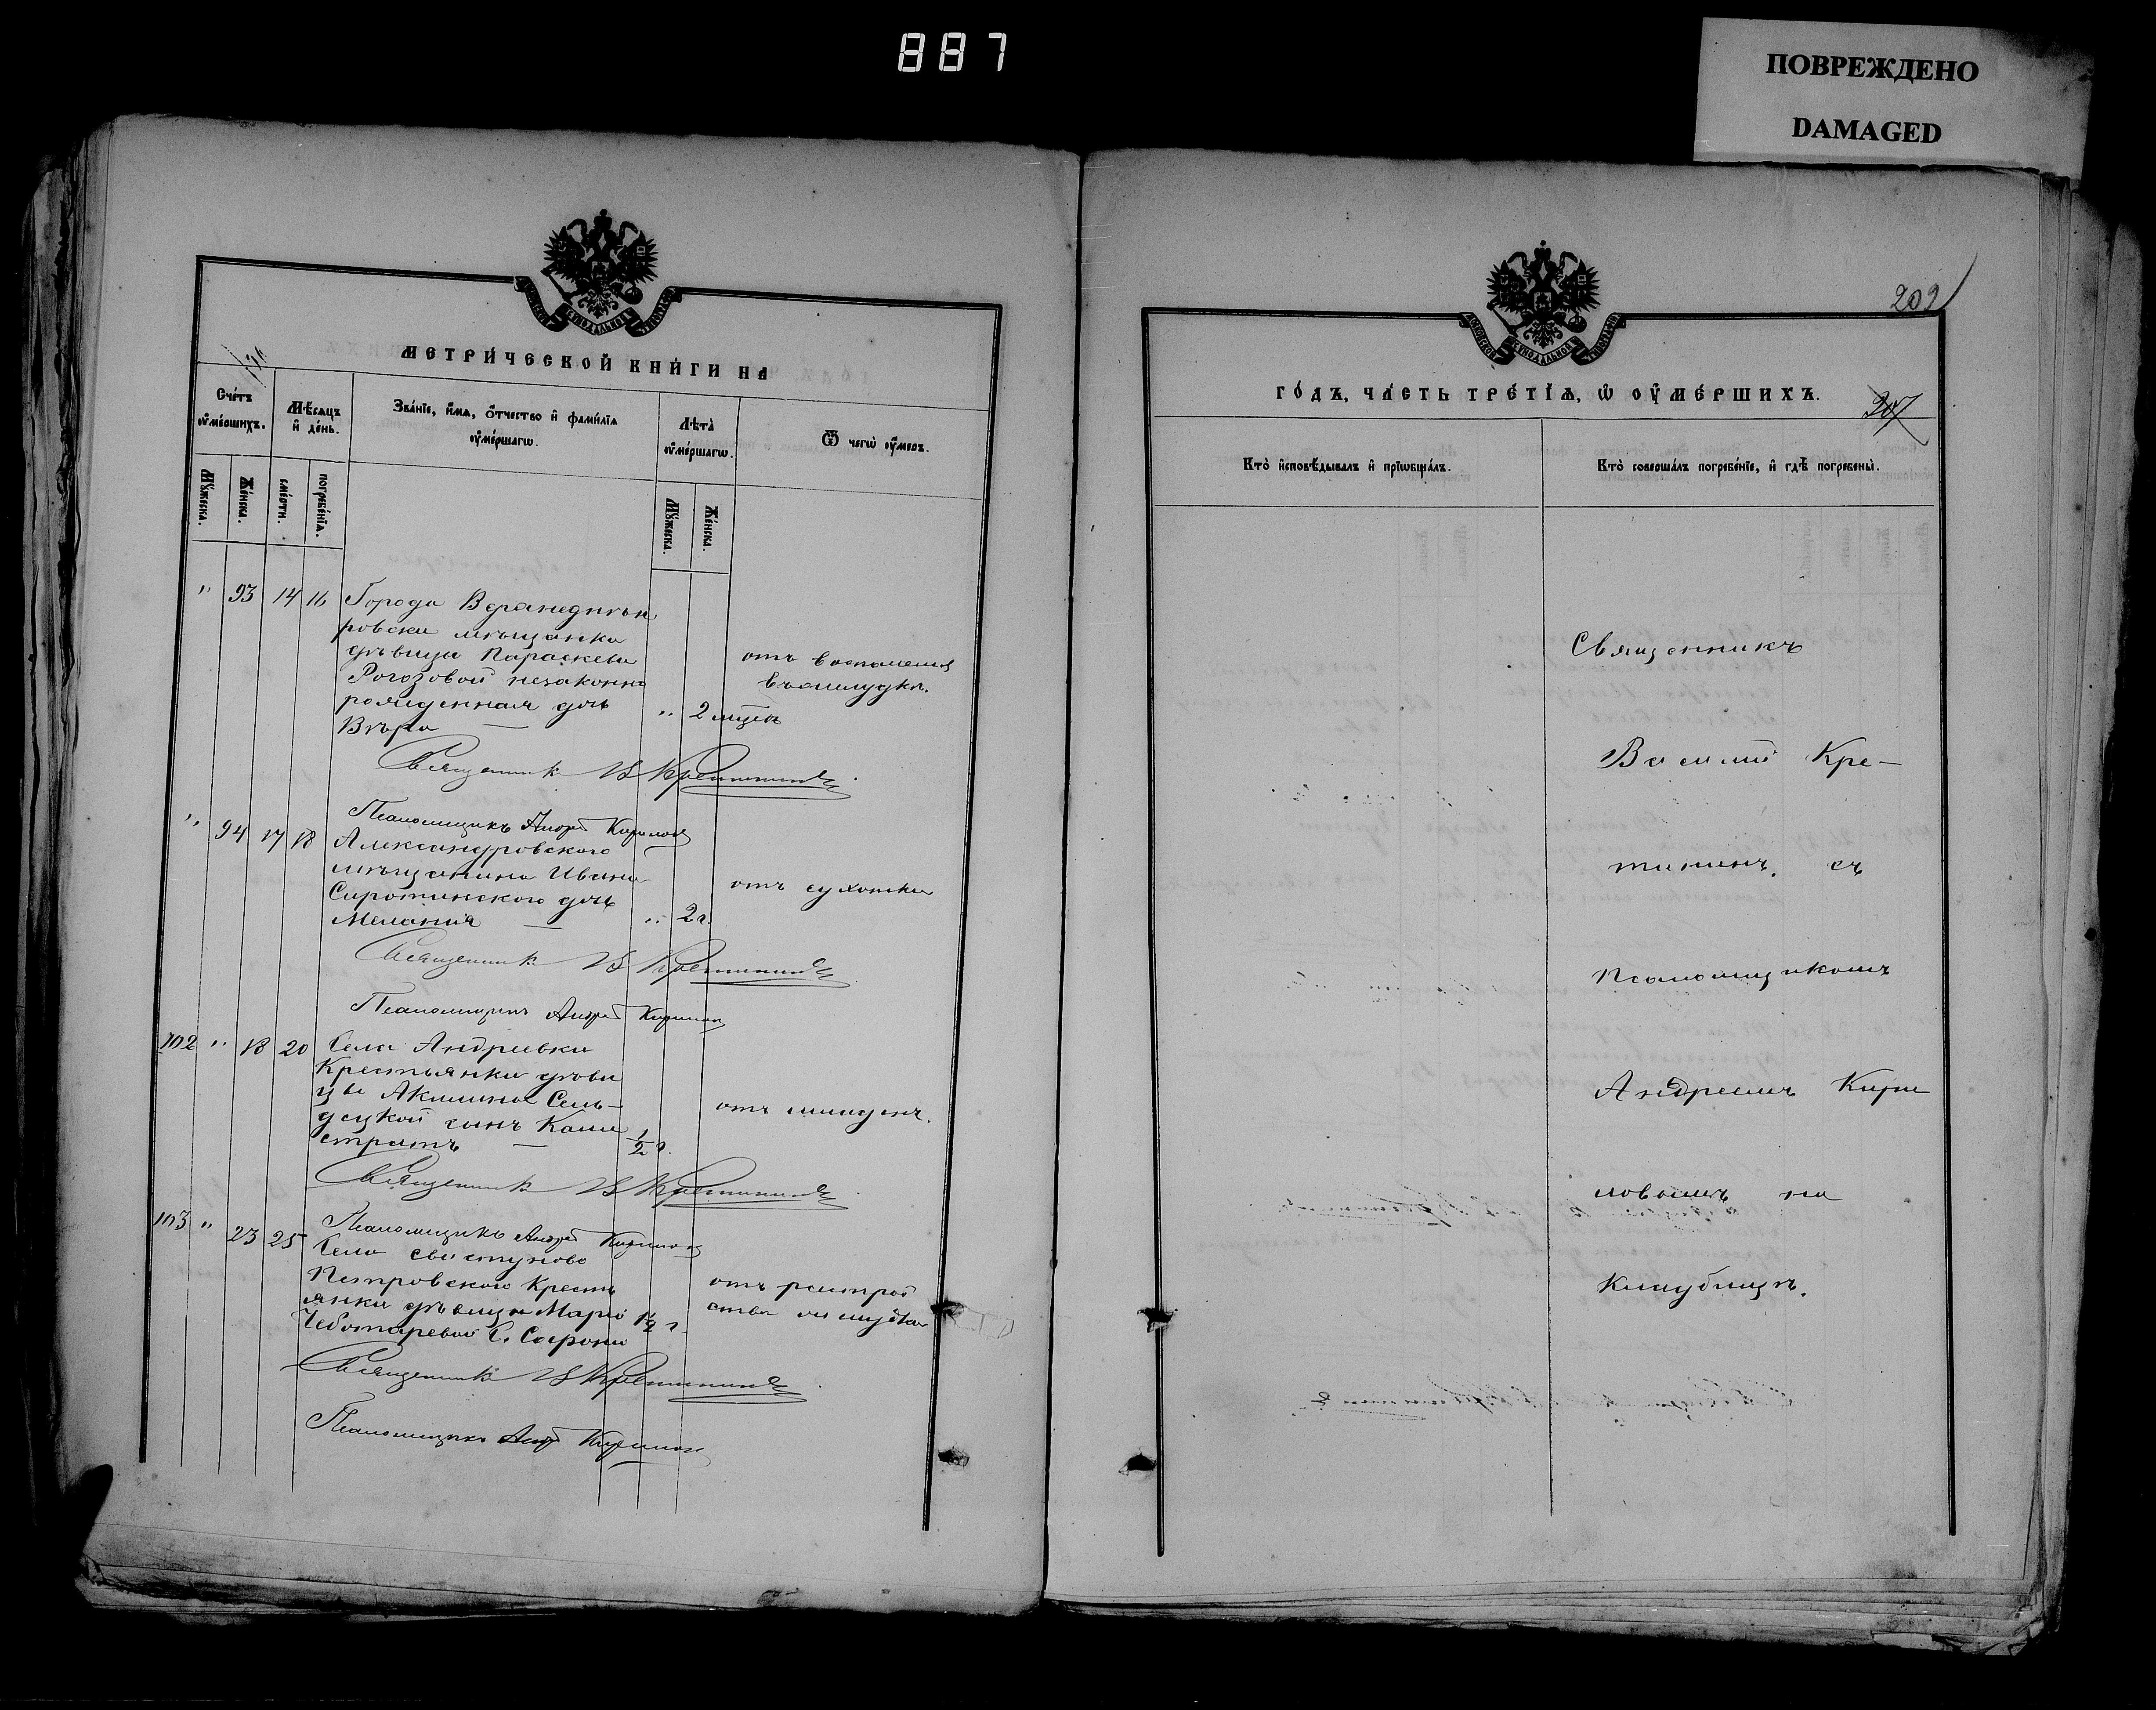 887
ПОВРЕЖДЕНО
DAMAGED
МЕТРИ́ЧЕСКОЙ КНИ́ГИ НА
Сче́тъ ᲂу҆ме́ршихъ.
Мѣ́сяцъ и҆ де́нь.
Зва́нїе, и҆́мѧ, ѻ҆́тчество и҆ фами́лїѧ ᲂу҆ме́ршагѡ.
Лѣ́та ᲂу҆ме́ршагѡ.
Ѿ чегѡ̀ ᲂу҆́меръ.
Мꙋ́жеска.
Же́нска.
сме́рти.
погребе́нїѧ.
Мꙋ́жеска.
Же́нска.
" 93 14 16 Города
ровска мѣщанки
дѣвицы Параскевы
Рогозовой незаконно
рожденная дочь
Вѣра — " 2 мѣсц
отъ воспаления
въ желудкѣ.
Священникъ В Кретининъ
Псаломщикъ Андрей Кирилов
" 94 17 18 Александровского
мѣщанина Ивана
Сиротинского дочь
Меланія — " 2 г.
отъ сухотки
Священникъ В Кретининъ
Псаломщикъ Андрей Кирилов
102 " 18 20 Села Андреевки
Крестьянки дѣви
цы Акилины Сель-
децкой сынъ Кали
стратъ — 1/2 г.
отъ младен.
Священникъ В Кретининъ
Псаломщикъ Андрей Кирилов
103 " 23 25 Села Свистуново
Петровского Кресть
янки дѣвицы Маріи 1/2 г.
Чеботаревой С. Софроній
отъ растрой
ства желудка
Священникъ В Кретининъ
Псаломщикъ Андр Кирилов
202
ГО́ДЪ, ЧА́СТЬ ТРЕ́ТЇѦ, Ѡ҆ ОУ҆МЕ́РШИХЪ.
207
Кто̀ и҆сповѣ́дывалъ и҆ прїѡбща́лъ.
Кто̀ соверша́лъ погребе́нїе, и҆ гдѣ̀ погребены̀.
Священникъ
Василій Кре-
тининъ. съ
псаломщикомъ
Андреемъ Кири
ловымъ на
Кладбищѣ.